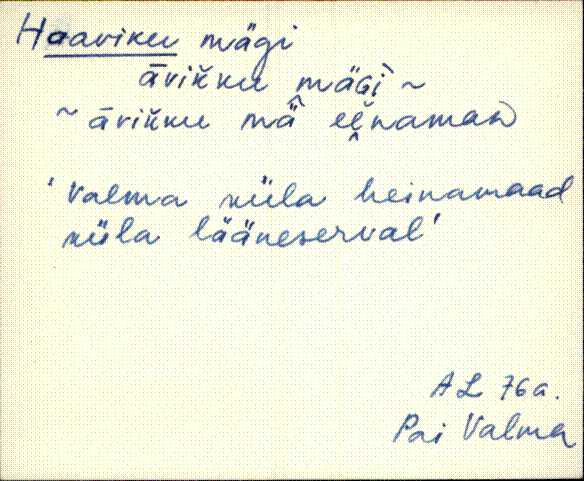 Haaviku mägi
āvikku mägì ~
~ āvikku mä eenamaD
'Valma küla heinamaad
küla lääneserval'
AL 76a.
Pai Valma